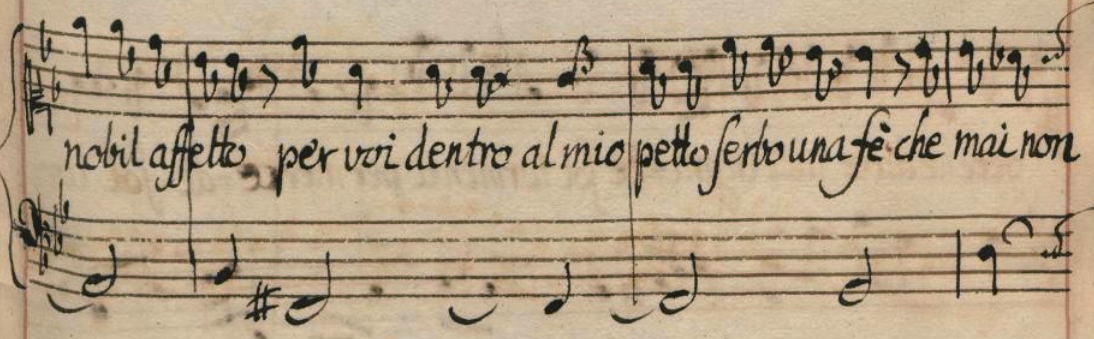 nobil affetto per voi dentro al mio petto serbo una fè che mai non